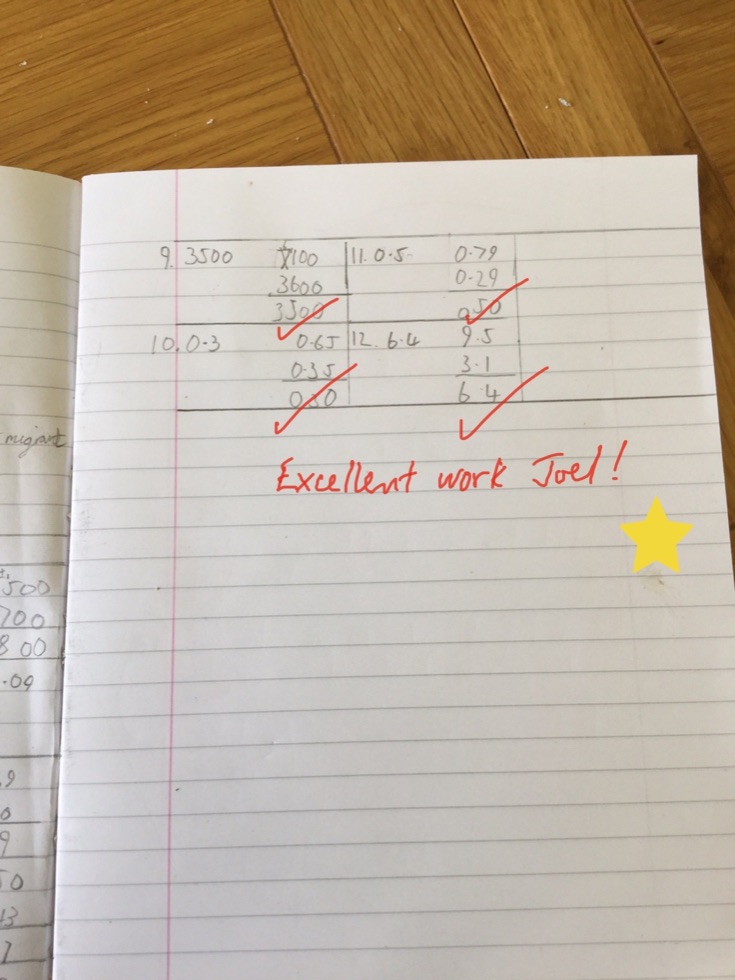 9. 3500 7100 11. 0.5 0.79
3600 0.29
3500 0.50
10. 0.3 0.65 12. 6.4 9.5
0.35 3.1
0.30 6.4
Excellent work Joel!
migrant
500
700
800
.09
9
0
9
50
13
7